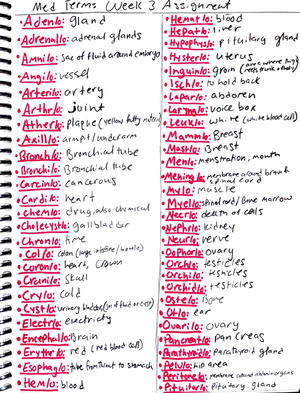 Med Terms Week 3 Assignment
• Adeno/o: gland
• Adrenal/o: adrenal glands
• Amni/o: Sac of fluid around embryo
• Angi/o: vessel
• Arteri/o: artery
• Arthr/o: joint
• Ather/o: plaque (yellow fatty material)
• Axill/o: armpit/underarm
• Bronch/o: Bronchial tube
• Bronchi/o: Bronchial tube
• Carcin/o: cancerous
• Cardi/o: heart
• Chem/o: drug, also chemical
• Cholecyst/o: gallbladder
• Chron/o: time
• Col/o: colon (large intestine/bowels)
• Coron/o: heart, crown
• Crani/o: skull
• Cry/o: cold
• Cyst/o: urinary bladder,
• Electr/o: electricity
• Encephal/o: Brain
• Erythr/o: red (red blood cell)
• Esophag/o: tube from throat to stomach
• Hem/o: blood
• Hemat/o: blood
• Hepat/o: liver
• Hypophys/o: pituitary gland
• Hyster/o: uterus
• Inguin/o: groin (area where thigh meets trunk of body)
• Isch/o: to hold back
• Lapar/o: abdomen
• Laryng/o: voice box
• Leuk/o: white (white blood cell)
• Mamm/o: Breast
• Mast/o: Breast
• Men/o: menstration, mouth
• Mening/o: membrane around brain & spinal cord
• My/o: muscle
• Myel/o: spinal cord/Bone marrow
• Necr/o: death of cells
• Nephr/o: kidney
• Neur/o: nerve
• Oophor/o: ovary
• Orch/o: testicles
• Orchi/o: testicles
• Orchid/o: testicles
• Oste/o: Bone
• Ot/o: ear
• Ovari/o: ovary
• Pancreat/o: pancreas
• Parathyroid/o: Parathyroid gland
• Pelv/o: hip area
• Peritone/o: membrane around abdomin organs
• Pituitar/o: pituitary gland